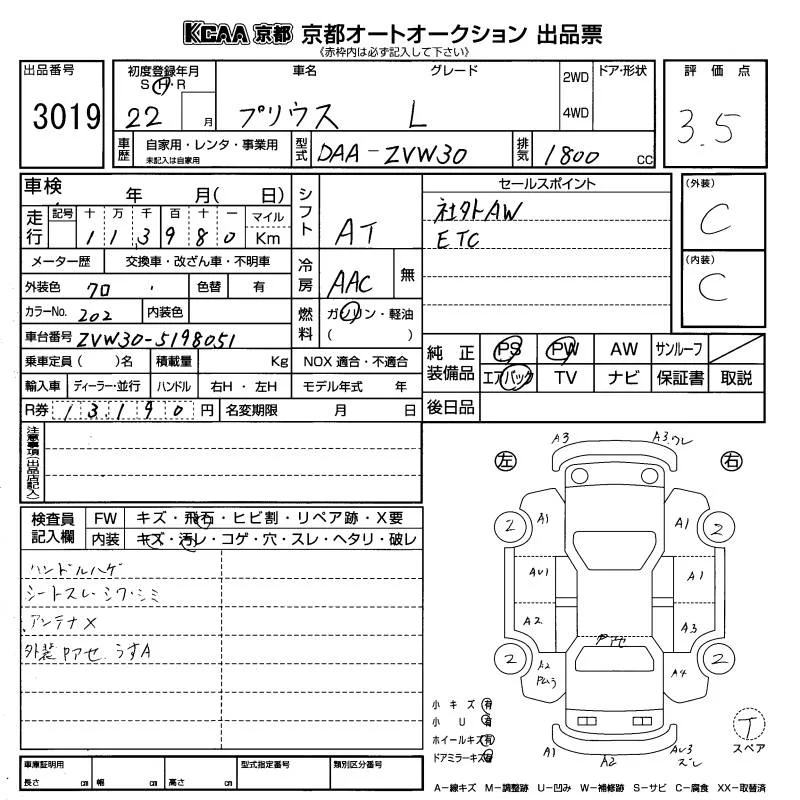 KCAA 京都 京都オートオークション 出品票
《赤枠内は必ず記入して下さい》
出品番号 3019
初度登録年月 S・H・R 22 月
車名 グレード プリウス L
2WD 4WD
ドア・形状
評価点 3.5
車歴 自家用・レンタ・事業用 未記入は自家用
型式 DAA-ZVW30
排気 1800 CC
車検 年 月( 日)
走行 記号 十 万 千 百 十 一 マイル Km
113980
メーター歴 交換車・改ざん車・不明車
外装色 クロ 色替 有
カラーNo. 202 内装色
車台番号 ZVW30-5198051
乗車定員( )名 積載量 Kg NOX 適合・不適合
輸入車 ディーラー・並行 ハンドル 右H・左H モデル年式 年
R券 13190円 名変期限 月 日
シフト AT
冷房 AAC 無
燃料 ガソリン・軽油 ( )
セールスポイント
社外AW
ETC
(外装) C
(内装) C
純正装備品 PS PW AW サンルーフ
エアバック TV ナビ 保証書 取説
後日品
注意事項(出品店記入)
検査員記入欄
FW キズ・飛石・ヒビ割・リペア跡・X要
内装 キズ・汚レ・コゲ・穴・スレ・ヘタリ・破レ
ハンドルハゲ
シートスレ・シワ・シミ
アンテナX
外装Pアセ.うすA
左 右
A3 A3.ワレ
2 A1 A1 2
AU1 A1
A2 A3
Pアセ
2 A2 2
A4
A1 A2 AU3 ズレ
小キズ 有
小U 有
ホイールキズ 有
ドアミラーキズ 有
T スペア
車庫証明用 型式指定番号 類別区分番号
長さ cm 幅 cm 高さ cm
A−線キズ M−調整跡 U−凹み W−補修跡 S−サビ C−腐食 XX−取替済